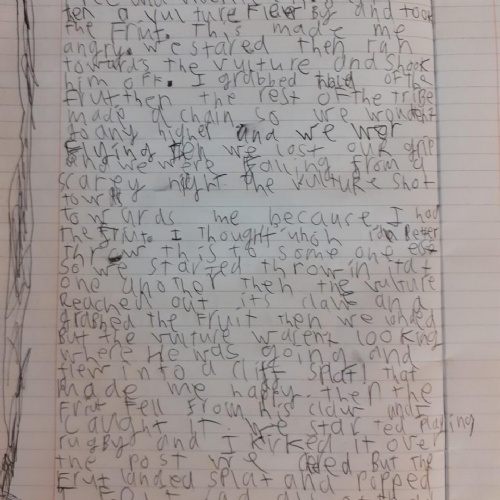 ten a vulture Flew By and took
the Frut. This made me
angry. we stared then ran
towards the vulture and shook
him off. I grabbed hold of the
Frut then the rest of the tribe
made a chain so we
go any higher and we wer
Flying ten we lost our grip
and we were Falling From a
scarey night the vulture shot
towr
towards me because I had
the Frut. I thought uhoh id better
throw this to some one
So we started throwin it at
one another then the vulture
Reached out its claw and
grabbed the Fruit then we
But the vulture warent looking
where He was going and
Flew into a cliff splat! that
made me happy. then the
Frut Fell From his claw and I
Caught it. We star ted Playing
rugby and I kicked it over
the post we But the
Frut landed splat and popped